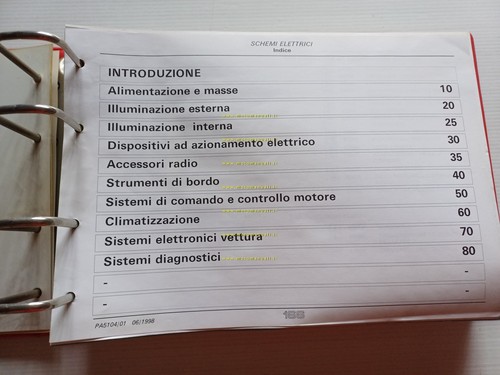 SCHEMI ELETTRICI
Indice
INTRODUZIONE
Alimentazione e masse 10
Illuminazione esterna 20
Illuminazione interna 25
Dispositivi ad azionamento elettrico 30
Accessori radio 35
Strumenti di bordo 40
Sistemi di comando e controllo motore 50
Climatizzazione 60
Sistemi elettronici vettura 70
Sistemi diagnostici 80
- -
- -
PA5104/01 06/1998
166